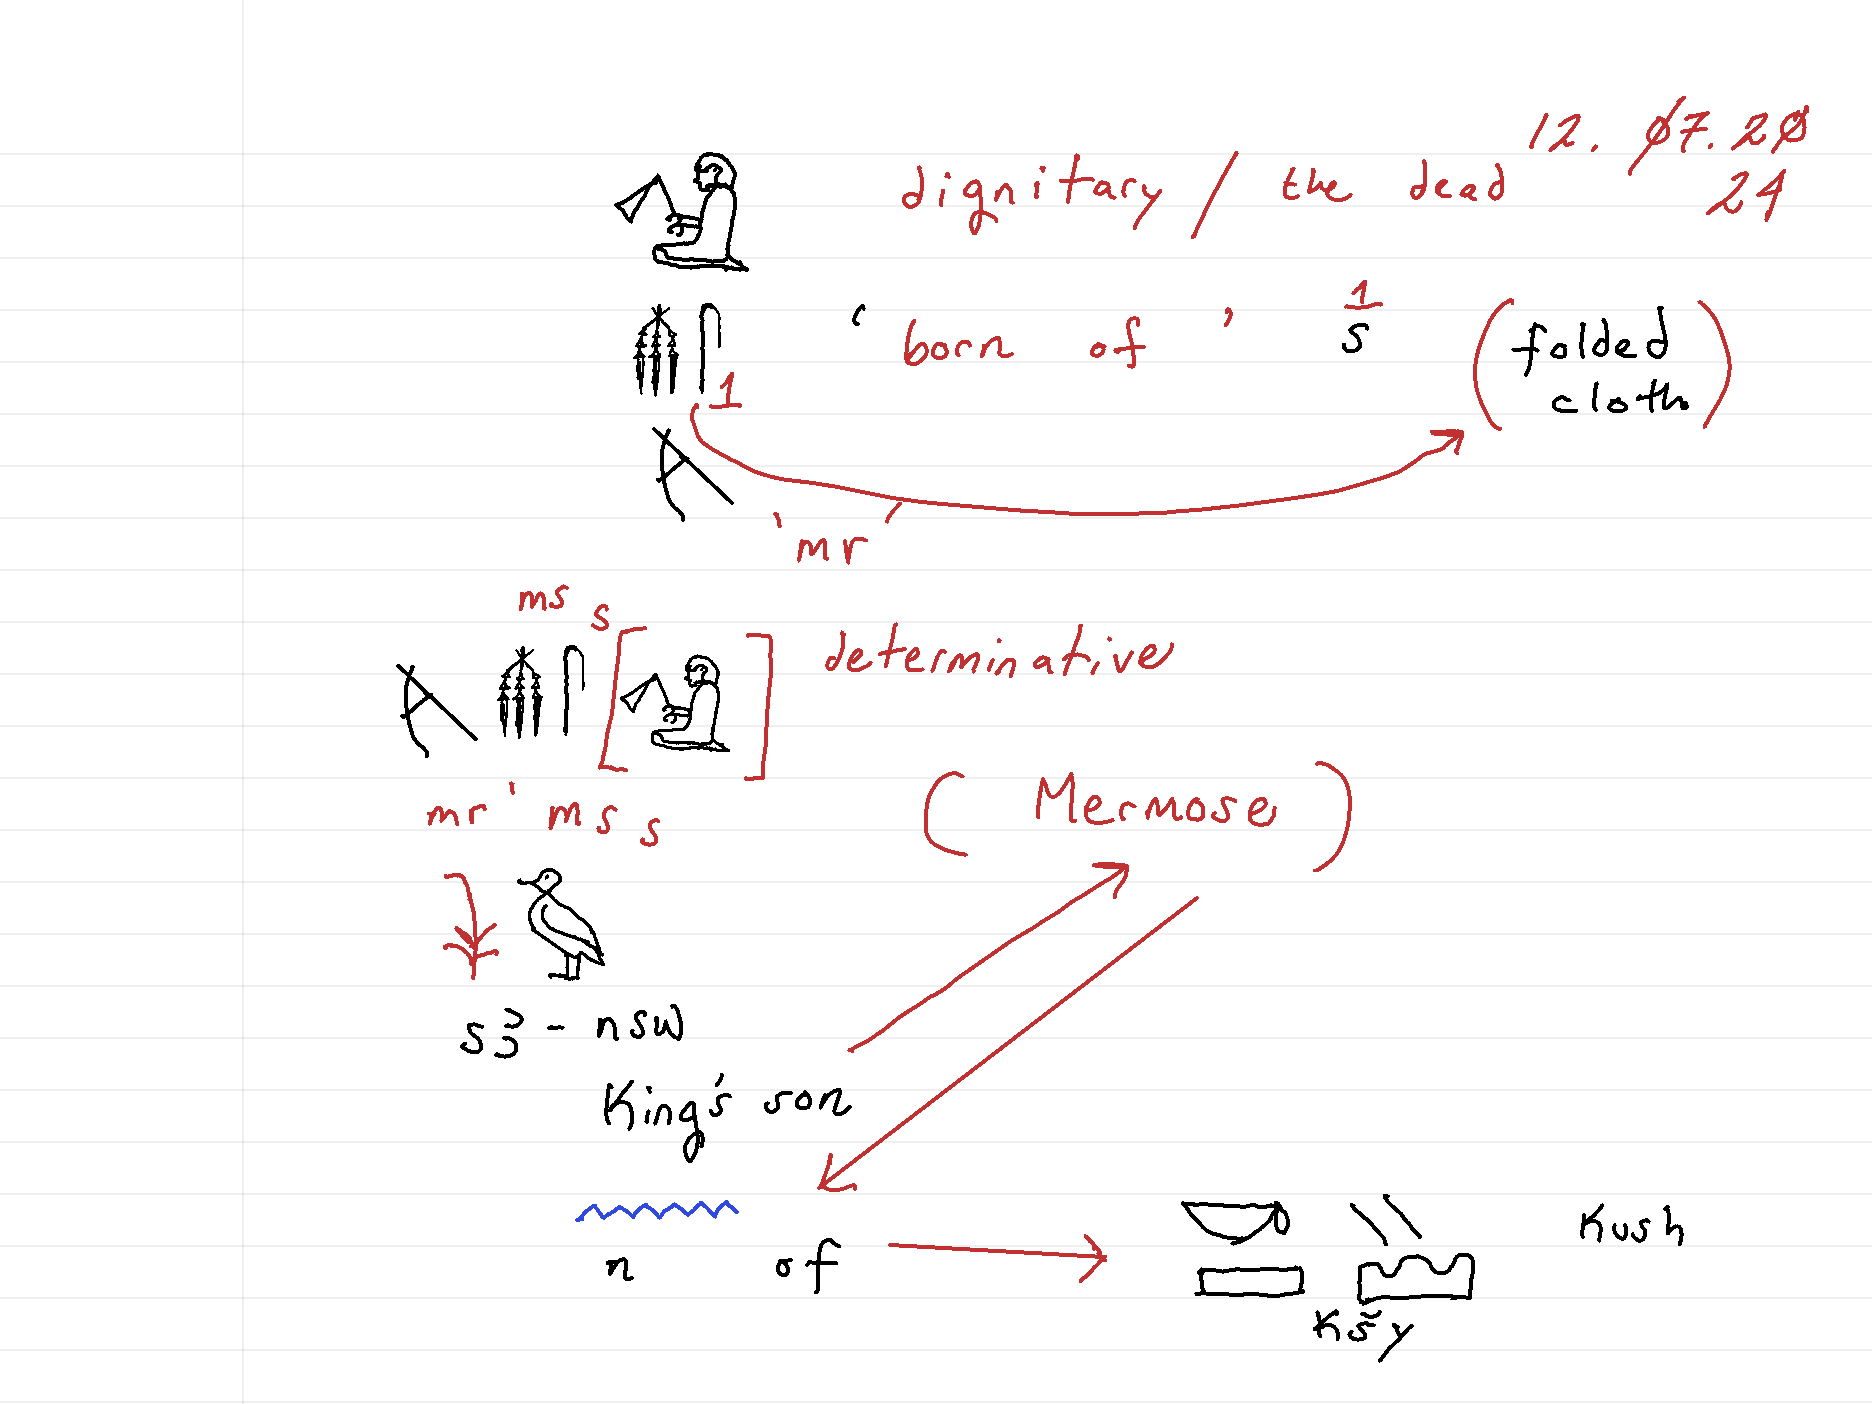 12. 07.20
24
dignitary / the dead
'born of' 1 s (folded
cloth)
1
'mr'
ms s
[ ] determinative
mr' ms s
(Mermose)
s3 - nsw
King's son
n of
Kush
Kšy